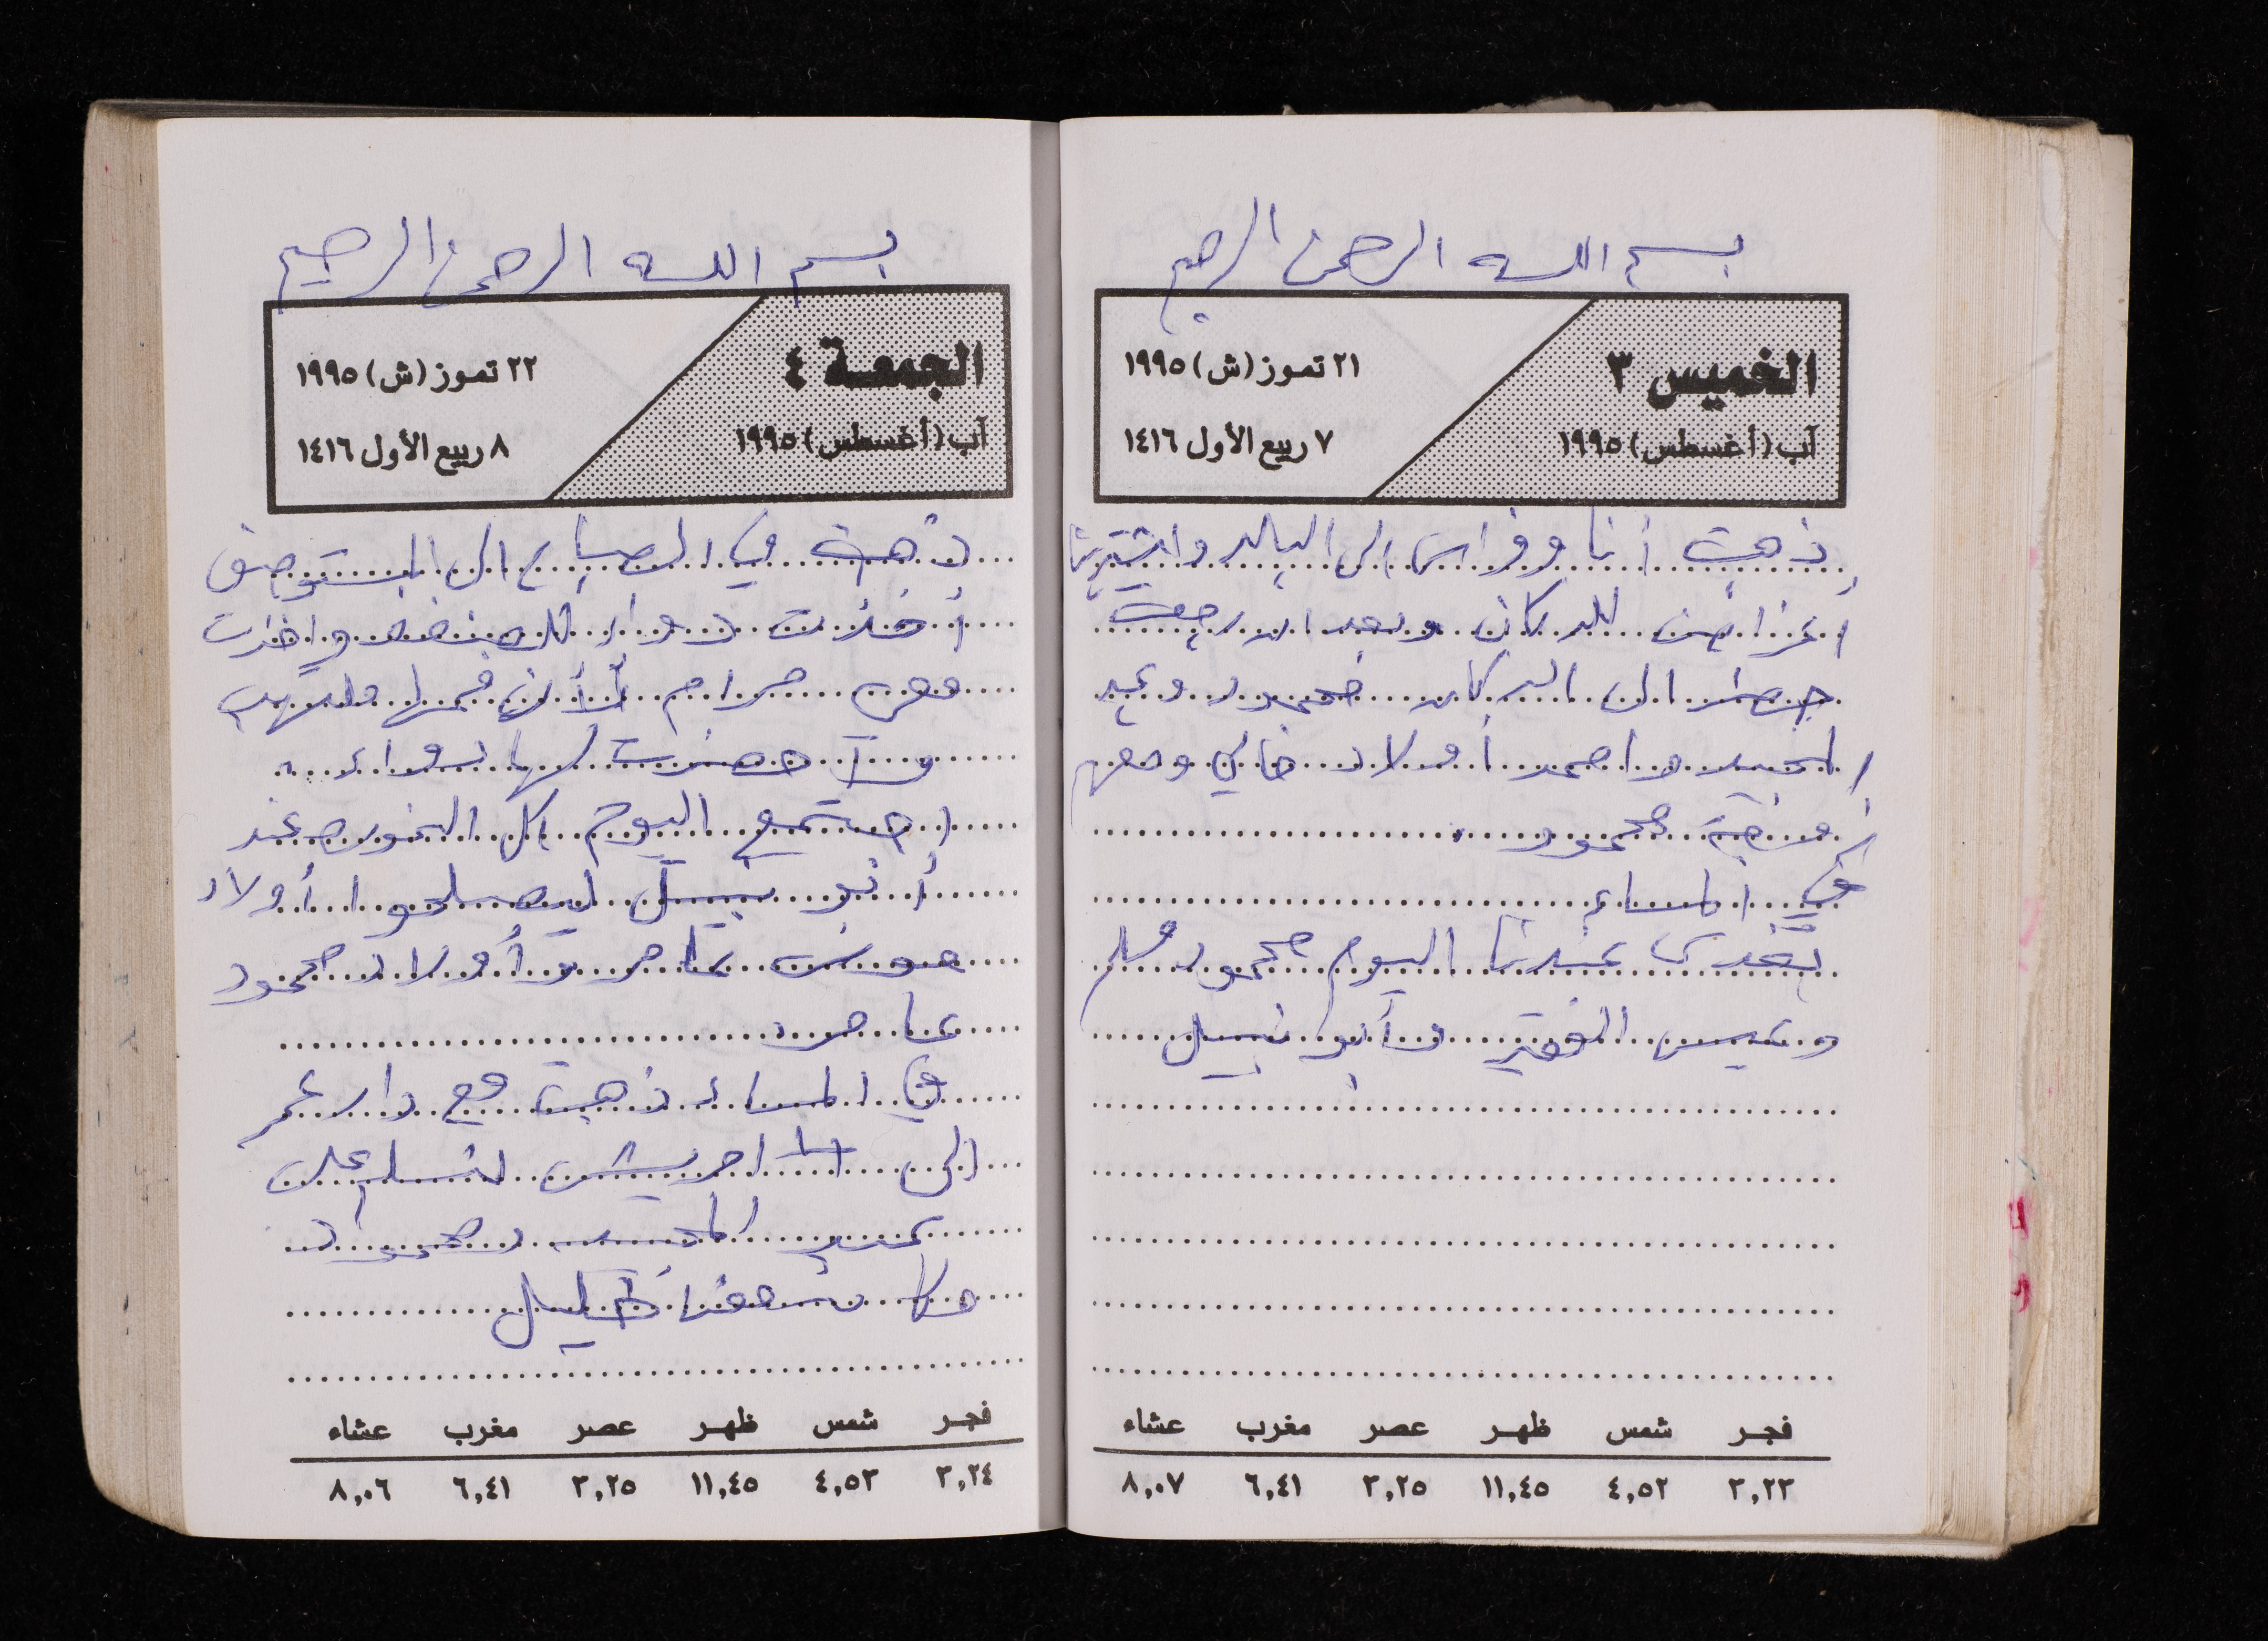 بسم الله الرحمن الرحيم
الخميس ٣
آب (أغسطس) ١٩٩٥
٢١ تموز (ش) ١٩٩٥
٧ ربيع الأول ١٤١٦
ذهبت أنا وفراس الى البلد واشترينا
أغراض للدكان وبعد ان رجعت
حضر الى الدكان محمود وعبد
المجيد واحمد أولاد خالي ومعهم
زوجة محمود
في المساء
تغدى عندنا اليوم محمود مسلم
وعيسى الفقير وأبو نبيل
فجر شمس ظهر عصر مغرب عشاء
٣,٢٣ ٤,٥٢ ١١,٤٥ ٣,٢٥ ٦,٤١ ٨,٠٧
بسم الله الرحمن الرحيم
الجمعة ٤
آب (أغسطس) ١٩٩٥
٢٢ تموز (ش) ١٩٩٥
٨ ربيع الأول ١٤١٦
ذهبت في الصباح الى المستوصف
أخذت دواء للضغط واخذت
معي مرام لأن فمها ملتهب
وأحضرت لها دواء
اجتمع اليوم كل النور عند
أبو نبيل ليصلحوا أولاد
عوض عامر وأولاد محمود
عامر
في المساء ذهبت مع دار عمر
الى احريش لنسلم على
عبد المجيد محمود
فجر شمس ظهر عصر مغرب عشاء
٣,٢٤ ٤,٥٣ ١١,٤٥ ٣,٢٥ ٦,٤١ ٨,٠٦